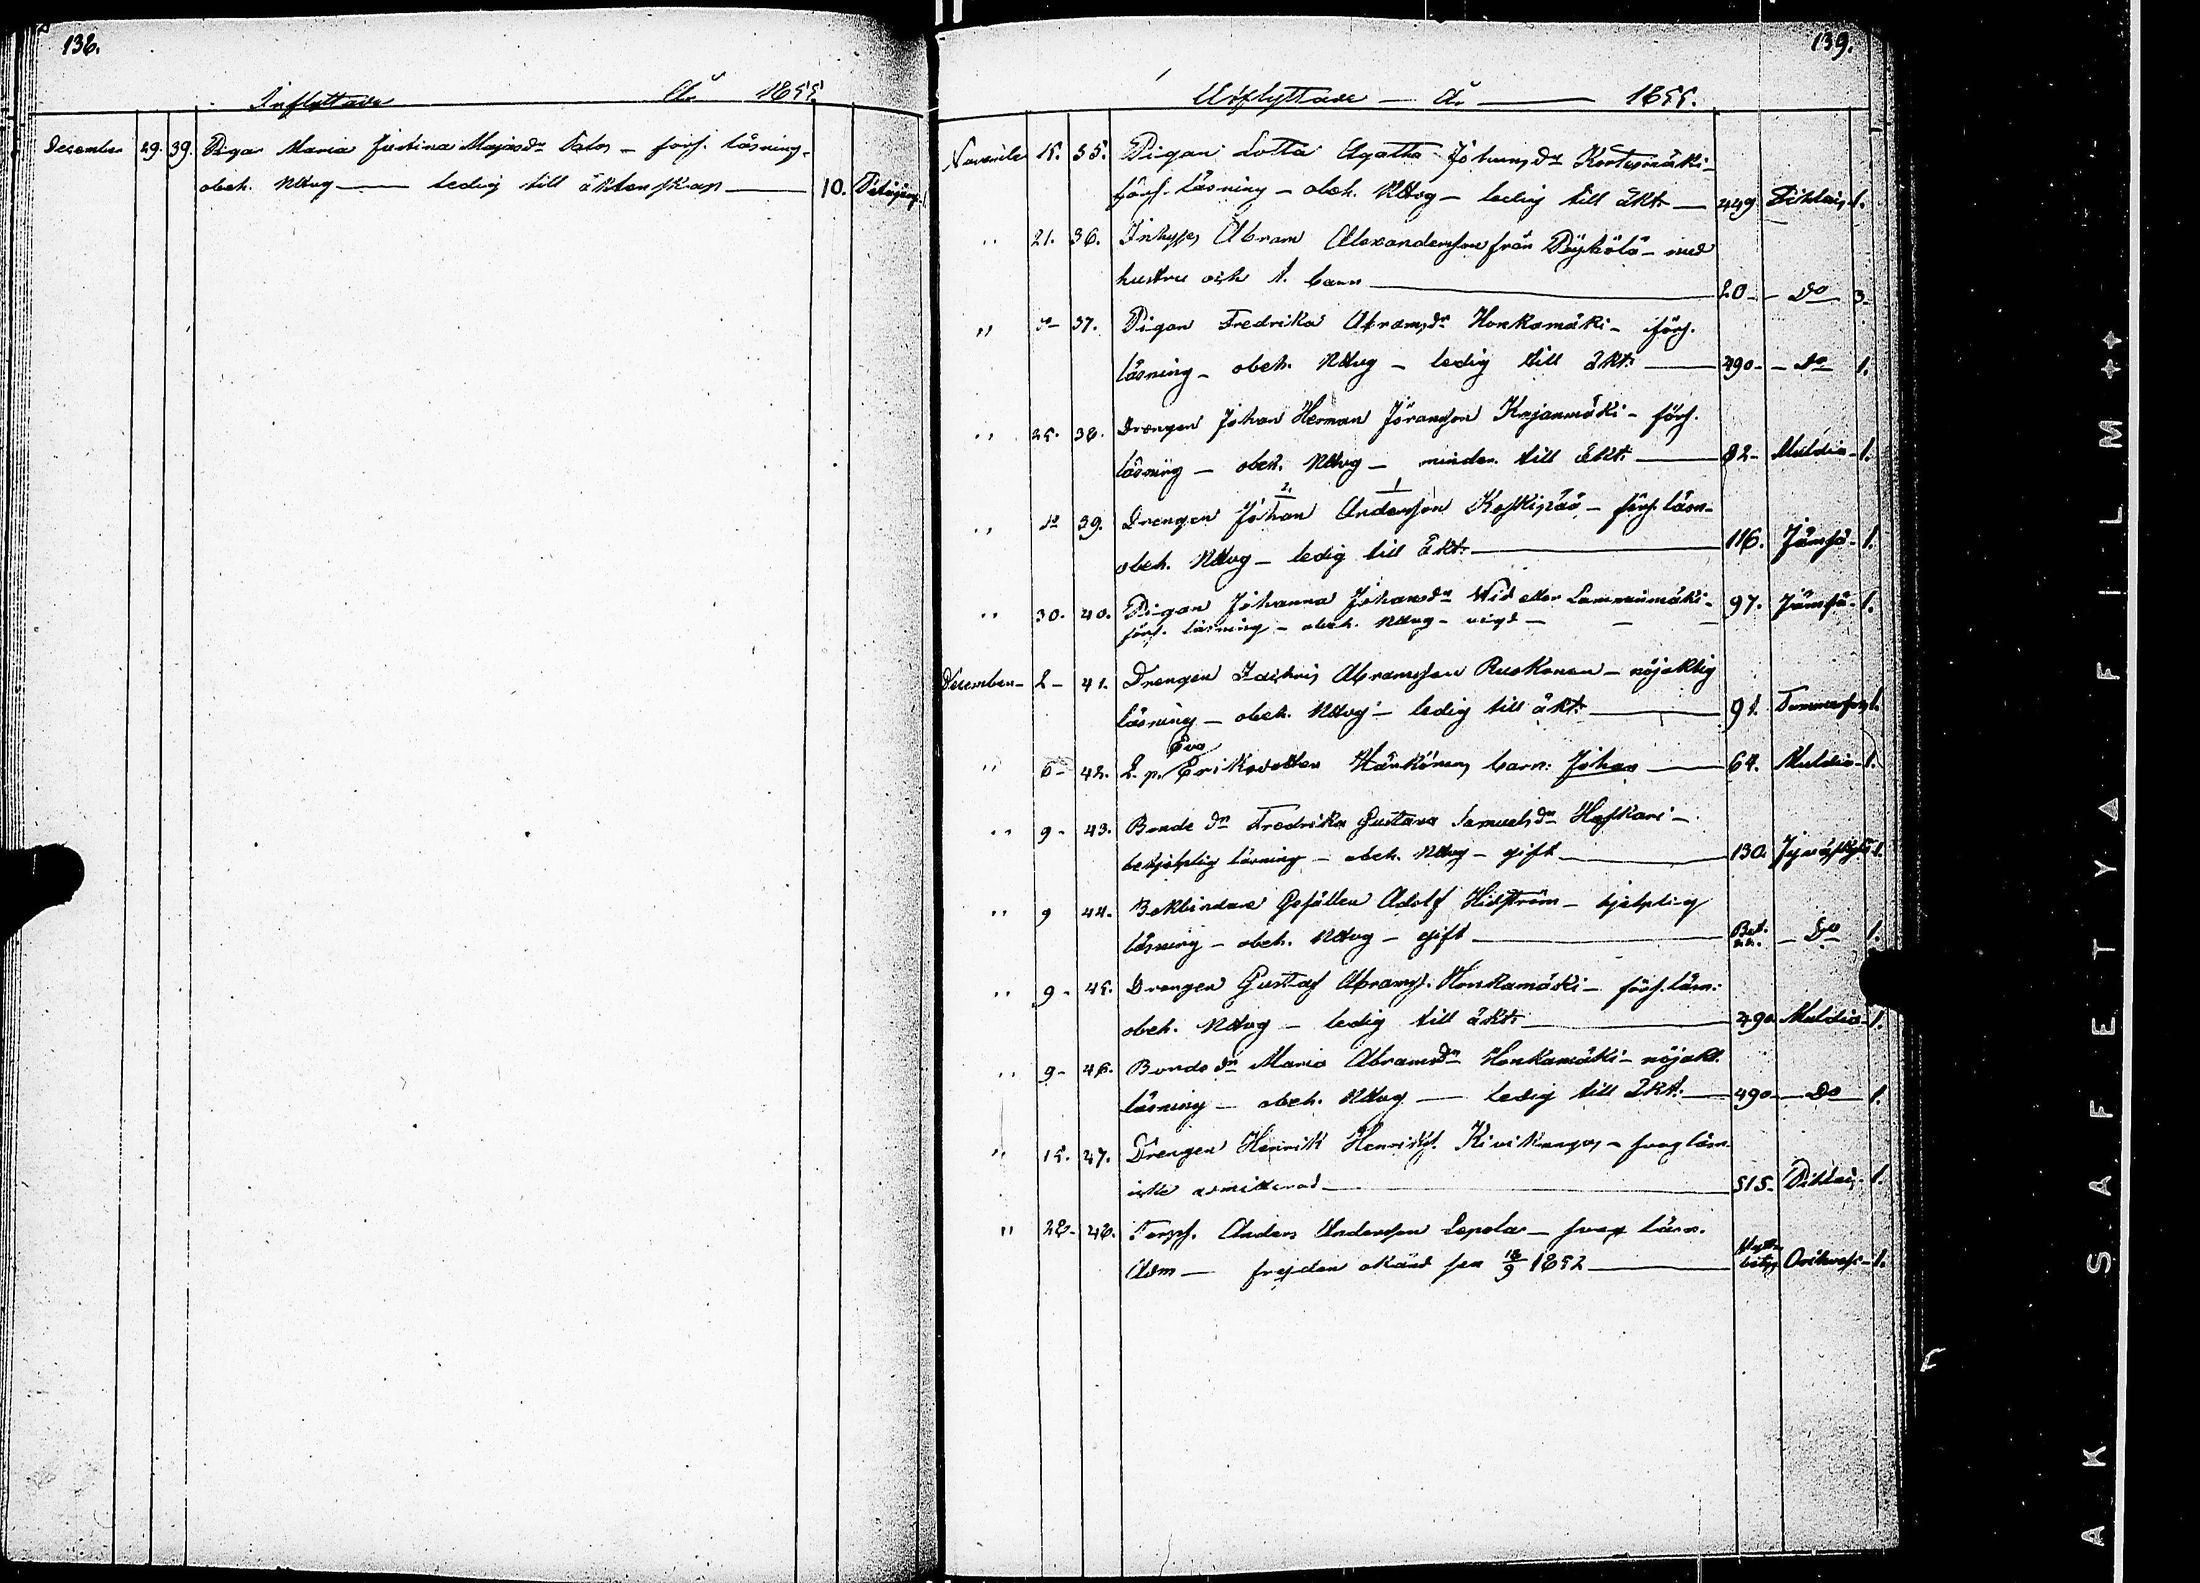 138.
Inflyttade År 1855.
December 29. 39. Pigan Maria Justina Majasdr Salos - förs. läsning.
obeh. Nttvg - ledig till äktenskap - 10.
139.
Utflyttade - År - 1855.
November 15. 35. Pigan Lotta Agatha Johansdr Kortesmäki -
förs. läsning - obeh. Nttvg - ledig till äkt. - 449. 1.
" 21. 36. Inhyses Abram Alexandersson från Pöykölä - med
hustru och 1. barn - 20 - Do 3.
" Do 37. Pigan Fredrika Abramsdr Honkamäki - förs.
läsning - obeh. Nttvg - ledig till äkt. - 490 - Do 1.
" 25. 38. Drengen Johan Herman Jöransson Kajanmäki - förs.
läsning - obeh. Nttvg - minder. till äkt. - 82 - Multia - 1.
2. 1
" Do 39. Drengen Johan Andersson Keskipää - förs. läsn.
obeh. Nttvg - ledig till äkt. - 116. Jämsä - 1.
" 30. 40. Pigan Johanna Johansdr Wid eller Lamminmäki - 97. Jämsä - 1.
förs. läsning - obeh. Nttvg - vigd -
December - 2 - 41. Drengen Zachris Abramsson Ruokonen - nöjaktig
läsning - obeh. Nttvg - ledig till äkt. - 91. 1.
Eva
" 6 - 42. Eriksdotter Hänkönens barn: Johan - 64. Multia - 1.
" 9 - 43. Bonde dr Fredrika Gustava Samuelsdr
läsning - obeh. Nttvg - gift - 130. Jyväskylä 1.
" 9 44. Bokbindare Gesällen Adolf Hidström - hjelplig
läsning - obeh. Nttvg - gift - Do 1.
" 9 - 45. Drengen Gustaf Abrams. Honkamäki - förs. läsn.
obeh. Nttvg - ledig till äkt. - 490 Multia - 1.
" 9 - 46. Bonde dr Maria Abramsdr Honkamäki - nöjakt.
läsning - obeh. Nttvg - ledig till äkt. - 490 - Do 1.
" 15. 47. Drengen Henrik Henriks. Kivikangas - svag läsn.
icke admitterad - 515. 1.
" 28 - 48. Anders Andersson Lepola - svag läsn.
Adm - frejden okänd sen 18/9 1852 - 1.
AK SAFETY FILM